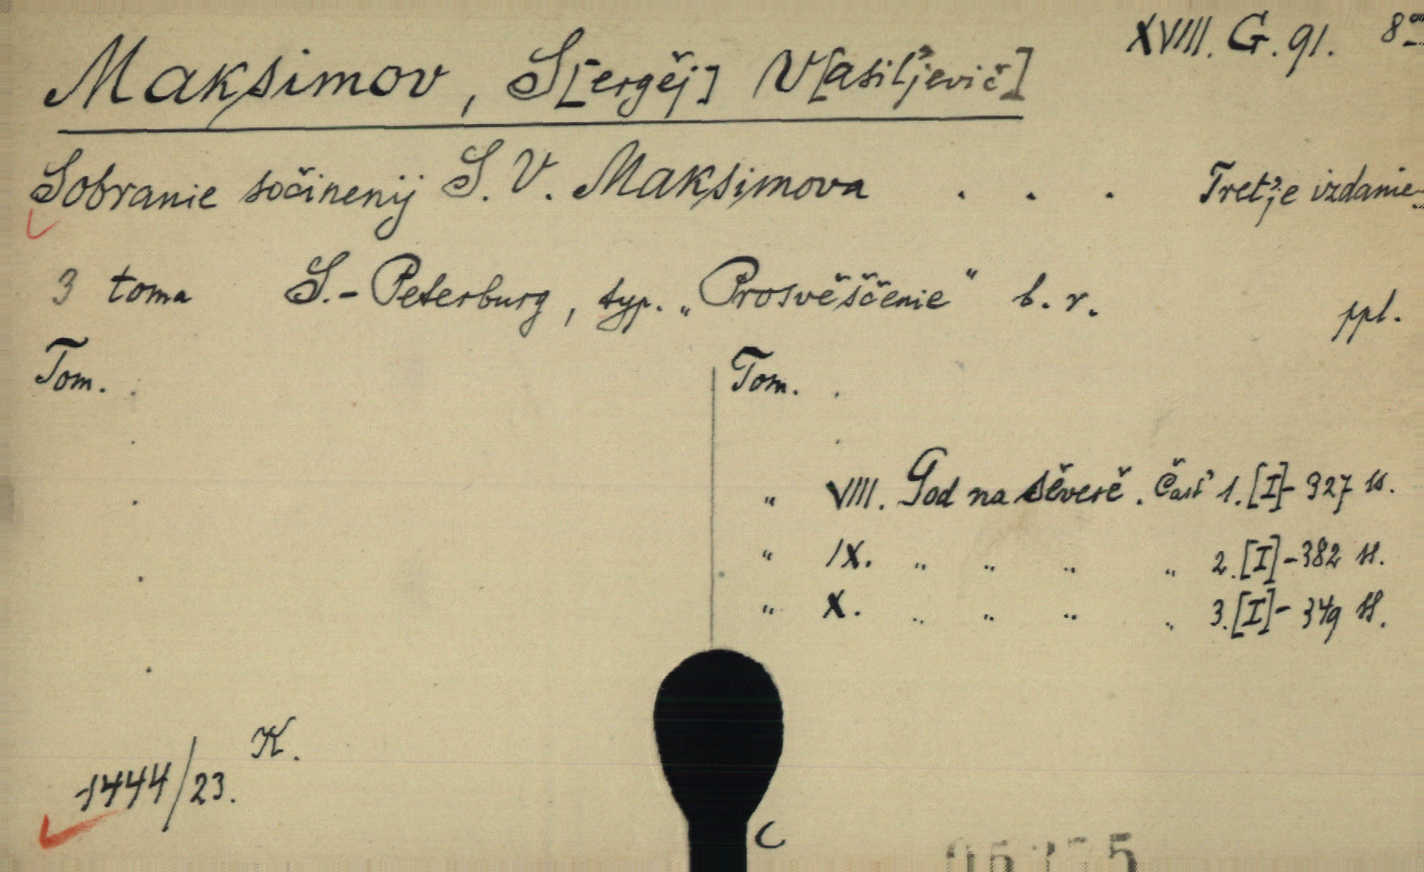 XVIII. G. 91. 8°
Maksimov, S[ergěj] V[asil'jevič]
Sobranie sočinenij S. V. Maksimova . . . Tret'je izdanie
3 toma S.-Peterburg, typ. „Prosvěščenie" b. r. ppl.
Tom. . Tom. .
„ VIII. God na sěverě. Čast' 1. [I]-327 ss.
„ IX. „ „ „ „ 2. [I]-382 ss.
„ X. „ „ „ „ 3. [I]-349 ss.
K.
1444/23.
C